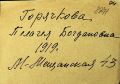 Горячкова
Пелагея Богдановна
1919.
М-Мещанская 43